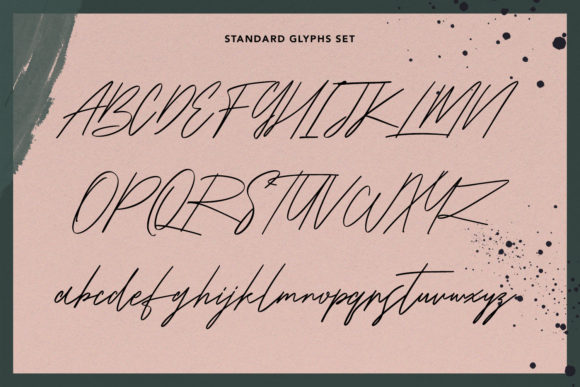 STANDARD GLYPHS SET
ABCDEFGHIJKLMN
OPQRSTUVWXYZ
abcdefghijklmnopqrstuvwxyz